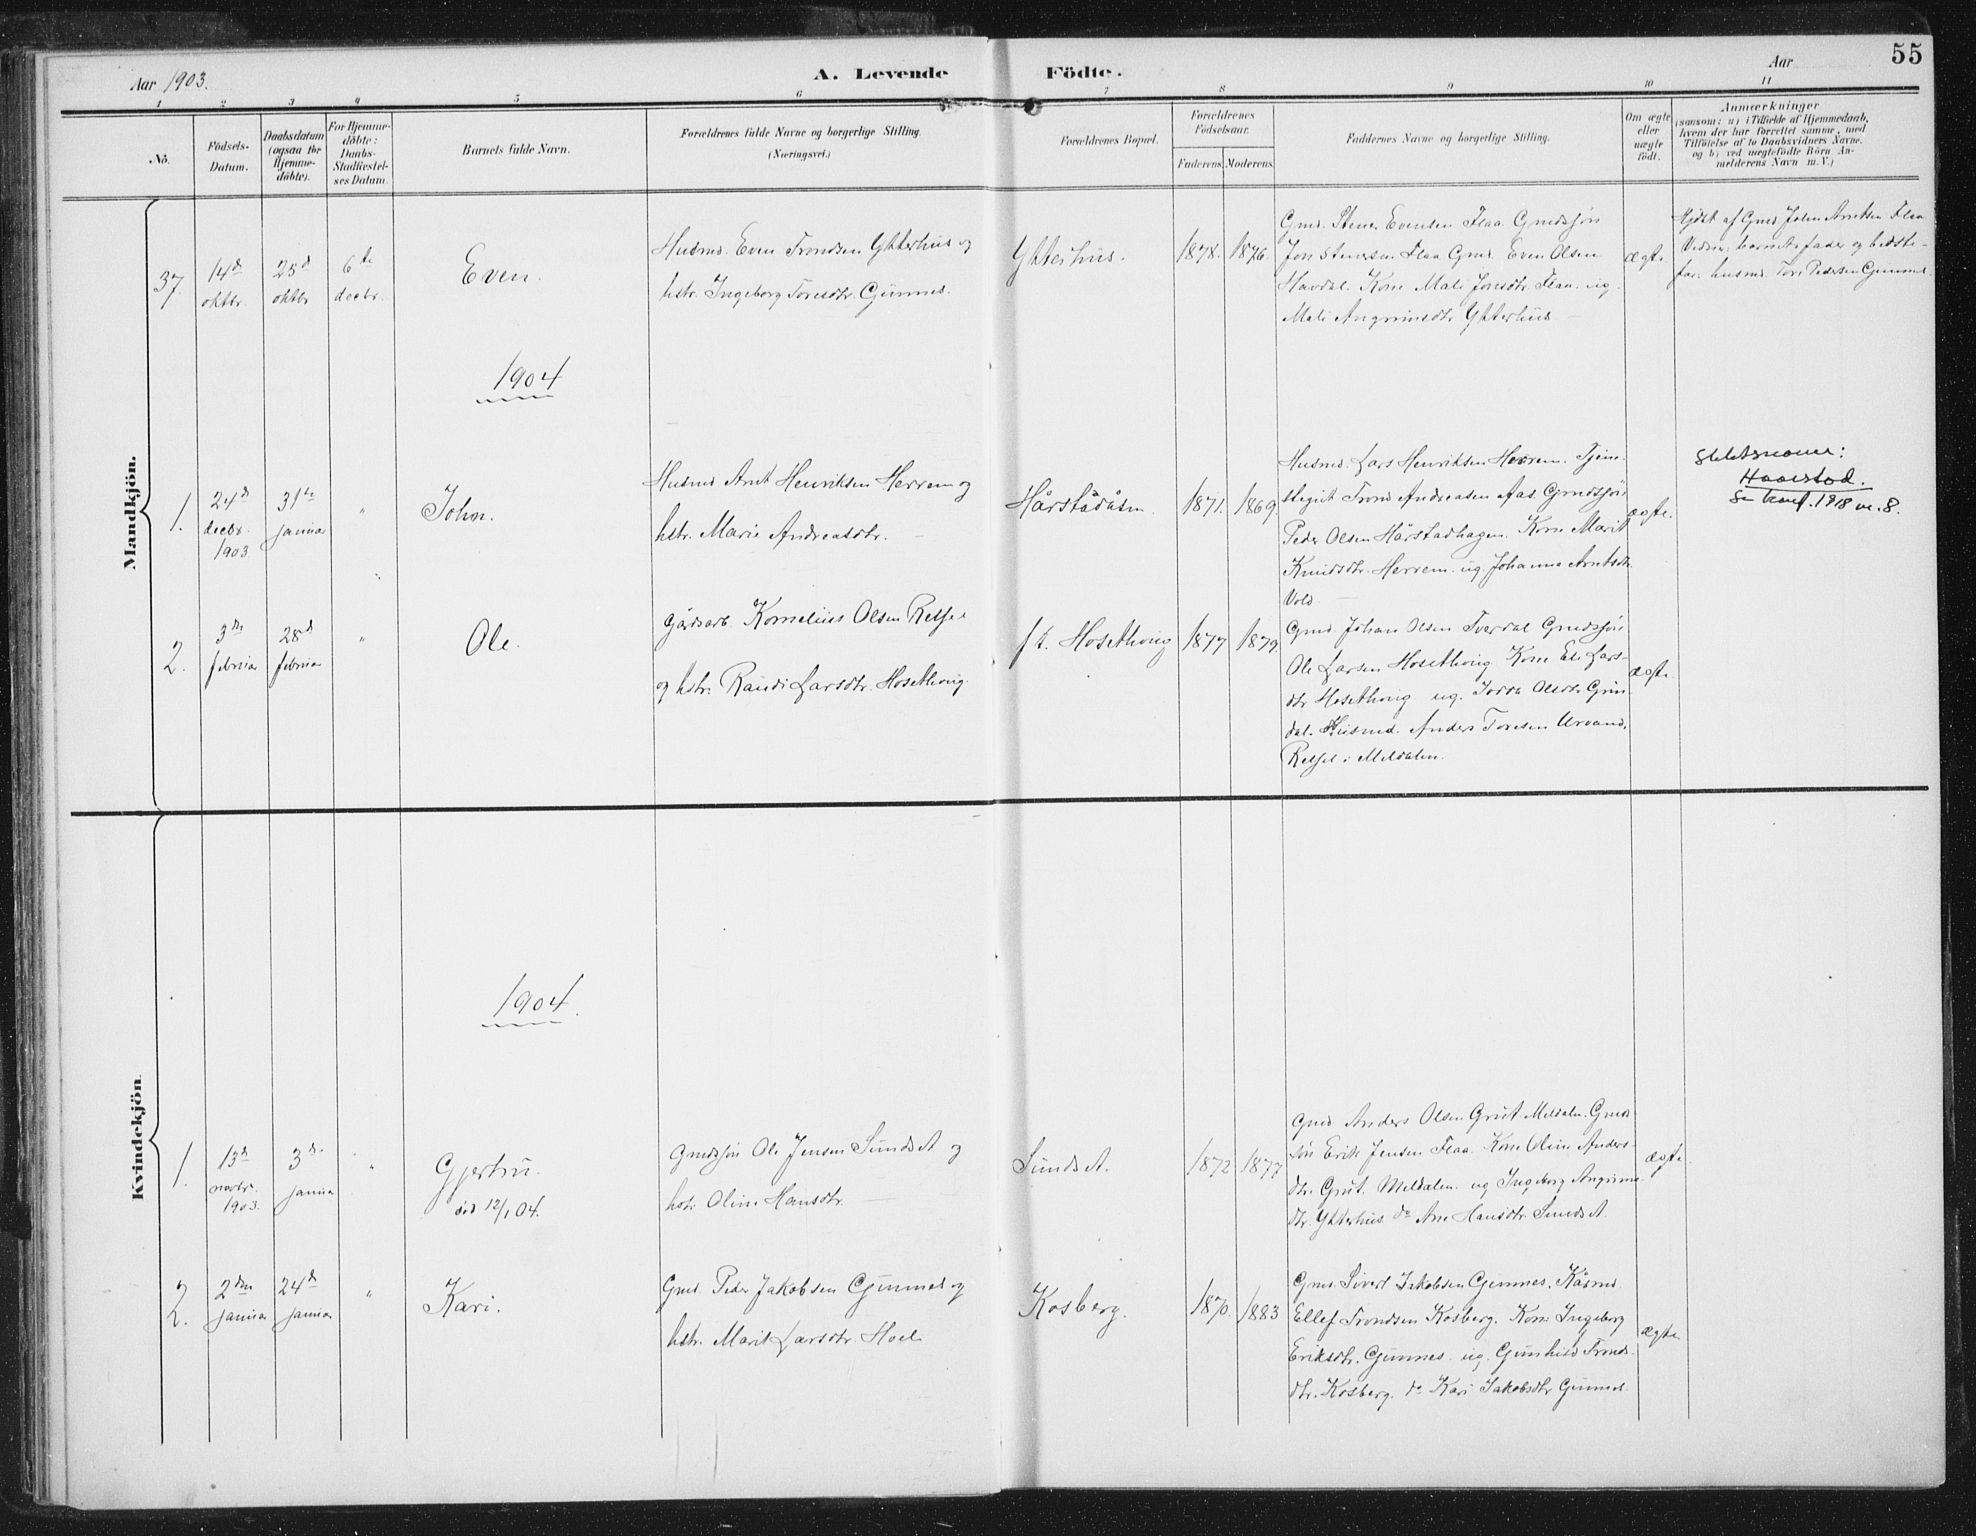 Aar 1903.
A. Levende Födte.
Aar
55
1 2 3 4 5 6 7 8 9 10 11
No.
Födsels-
Datum.
Daabsdatum
(ogsaa for
Hjemme-
döbte).
For Hjemme-
döbte:
Daabs-
Stadfæstel-
ses Datum.
Barnets fulde Navn.
Forældrenes fulde Navne og borgerlige Stilling.
(Næringsvei.)
Forældrenes Bopæl.
Forældrenes
Födselsaar.
Faderens. Moderens.
Faddernes Navne og borgerlige Stilling.
Om ægte
eller
uægte
födt.
Anmærkninger
(saasom: a) i Tilfælde af Hjemmedaab,
hvem der har forrettet samme, med
Tilföielse af to Daabsvidners Navne,
og b) ved uægtefödte Börn An-
melderens Navn m. V.)
Mandkjön.
37.
14d
oktbr.
25d
oktbr
6te
decbr.
Even.
Husmd. Even Trondsen Ytterhus og
hstr. Ingeborg Toresdtr. Gunnes.
Ytterhus.
1878. 1876.
Gmd. Stener Evensen Flaa. Gmdssjön
Jon Stenersen Flaa Gmd. Even Olsen
Havdal. Kone Mali Jonsdtr. Flaa. ug.
Mali Angrimsdtr Ytterhus
ægte
Hjdøbt af Gmd John Arntsen Flaa
Vidner: barnets fader og bedste-
far husmd. Tore Pedersen Gunnes.
1904
1.
24d
decbr.
1903
31te
januar
"
John.
Husmd Arnt Henriksen Herrem og
hstr. Marie Andreasdtr.
Hårstadåsen.
1871. 1869
Husmd. Lars Henriksen Herrem. Tjene-
stegut Trond Andreasen Aas. Gmdssjön
Peder Olsen Hårstadhagen. Kone Marit
Knudsdtr. Herrem. ug. Johanna Arntsdtr.
Vold
ægte.
Slektsnavn:
Haarstad.
Se konf. 1918 nr. 8.
2.
3die
februar
28d
februar
"
Ole.
Gårdsarb. Kornelius Olsen Retsel
og hstr. Randi Larsdtr. Hosethoug.
f.t. Hosethoug
1877 1879
Gmd Johan Olsen Tverdal Gmdssjön
Ole Larsen Hosethoug. Kone Eli Lars-
dtr Hosethoug. ug. Olsdtr. Grin
dal. Husmd. Anders Toresen
Retsel i Meldalen.
ægte
Kvindekjön.
1904.
1.
13d
novbr.
1903.
3d
januar
"
Gjertru.
död 12/1 04.
Gmdssjön Ole Jensen Sundset og
hstr Oline Hansdtr.
Sundset.
1872 1877
Gmd. Anders Olsen Grut Meldalen. Gmds-
sön Erik Jensen Flaa. Kone Oline Anders-
dtr. Grut. Meldalen. ug Ingeborg Angrims-
dtr. Ytterhus. do Ane Hansdtr. Sundset.
ægte.
2.
2den
januar
24d
januar
"
Kari.
Gmd. Peder Jakobsen Gunnes og
hstr. Marit Larsdtr. Hoel
Kosberg.
1870. 1883
Gmd. Sivert Jakobsen Gunnes. Kårmd.
Ellef Trondsen Kosberg. Kone Ingeborg
Eriksdtr. Gunnes. ug. Gunhild Tronds-
dtr. Kosberg. do Kari Jakobsdtr Gunnes.
ægte.